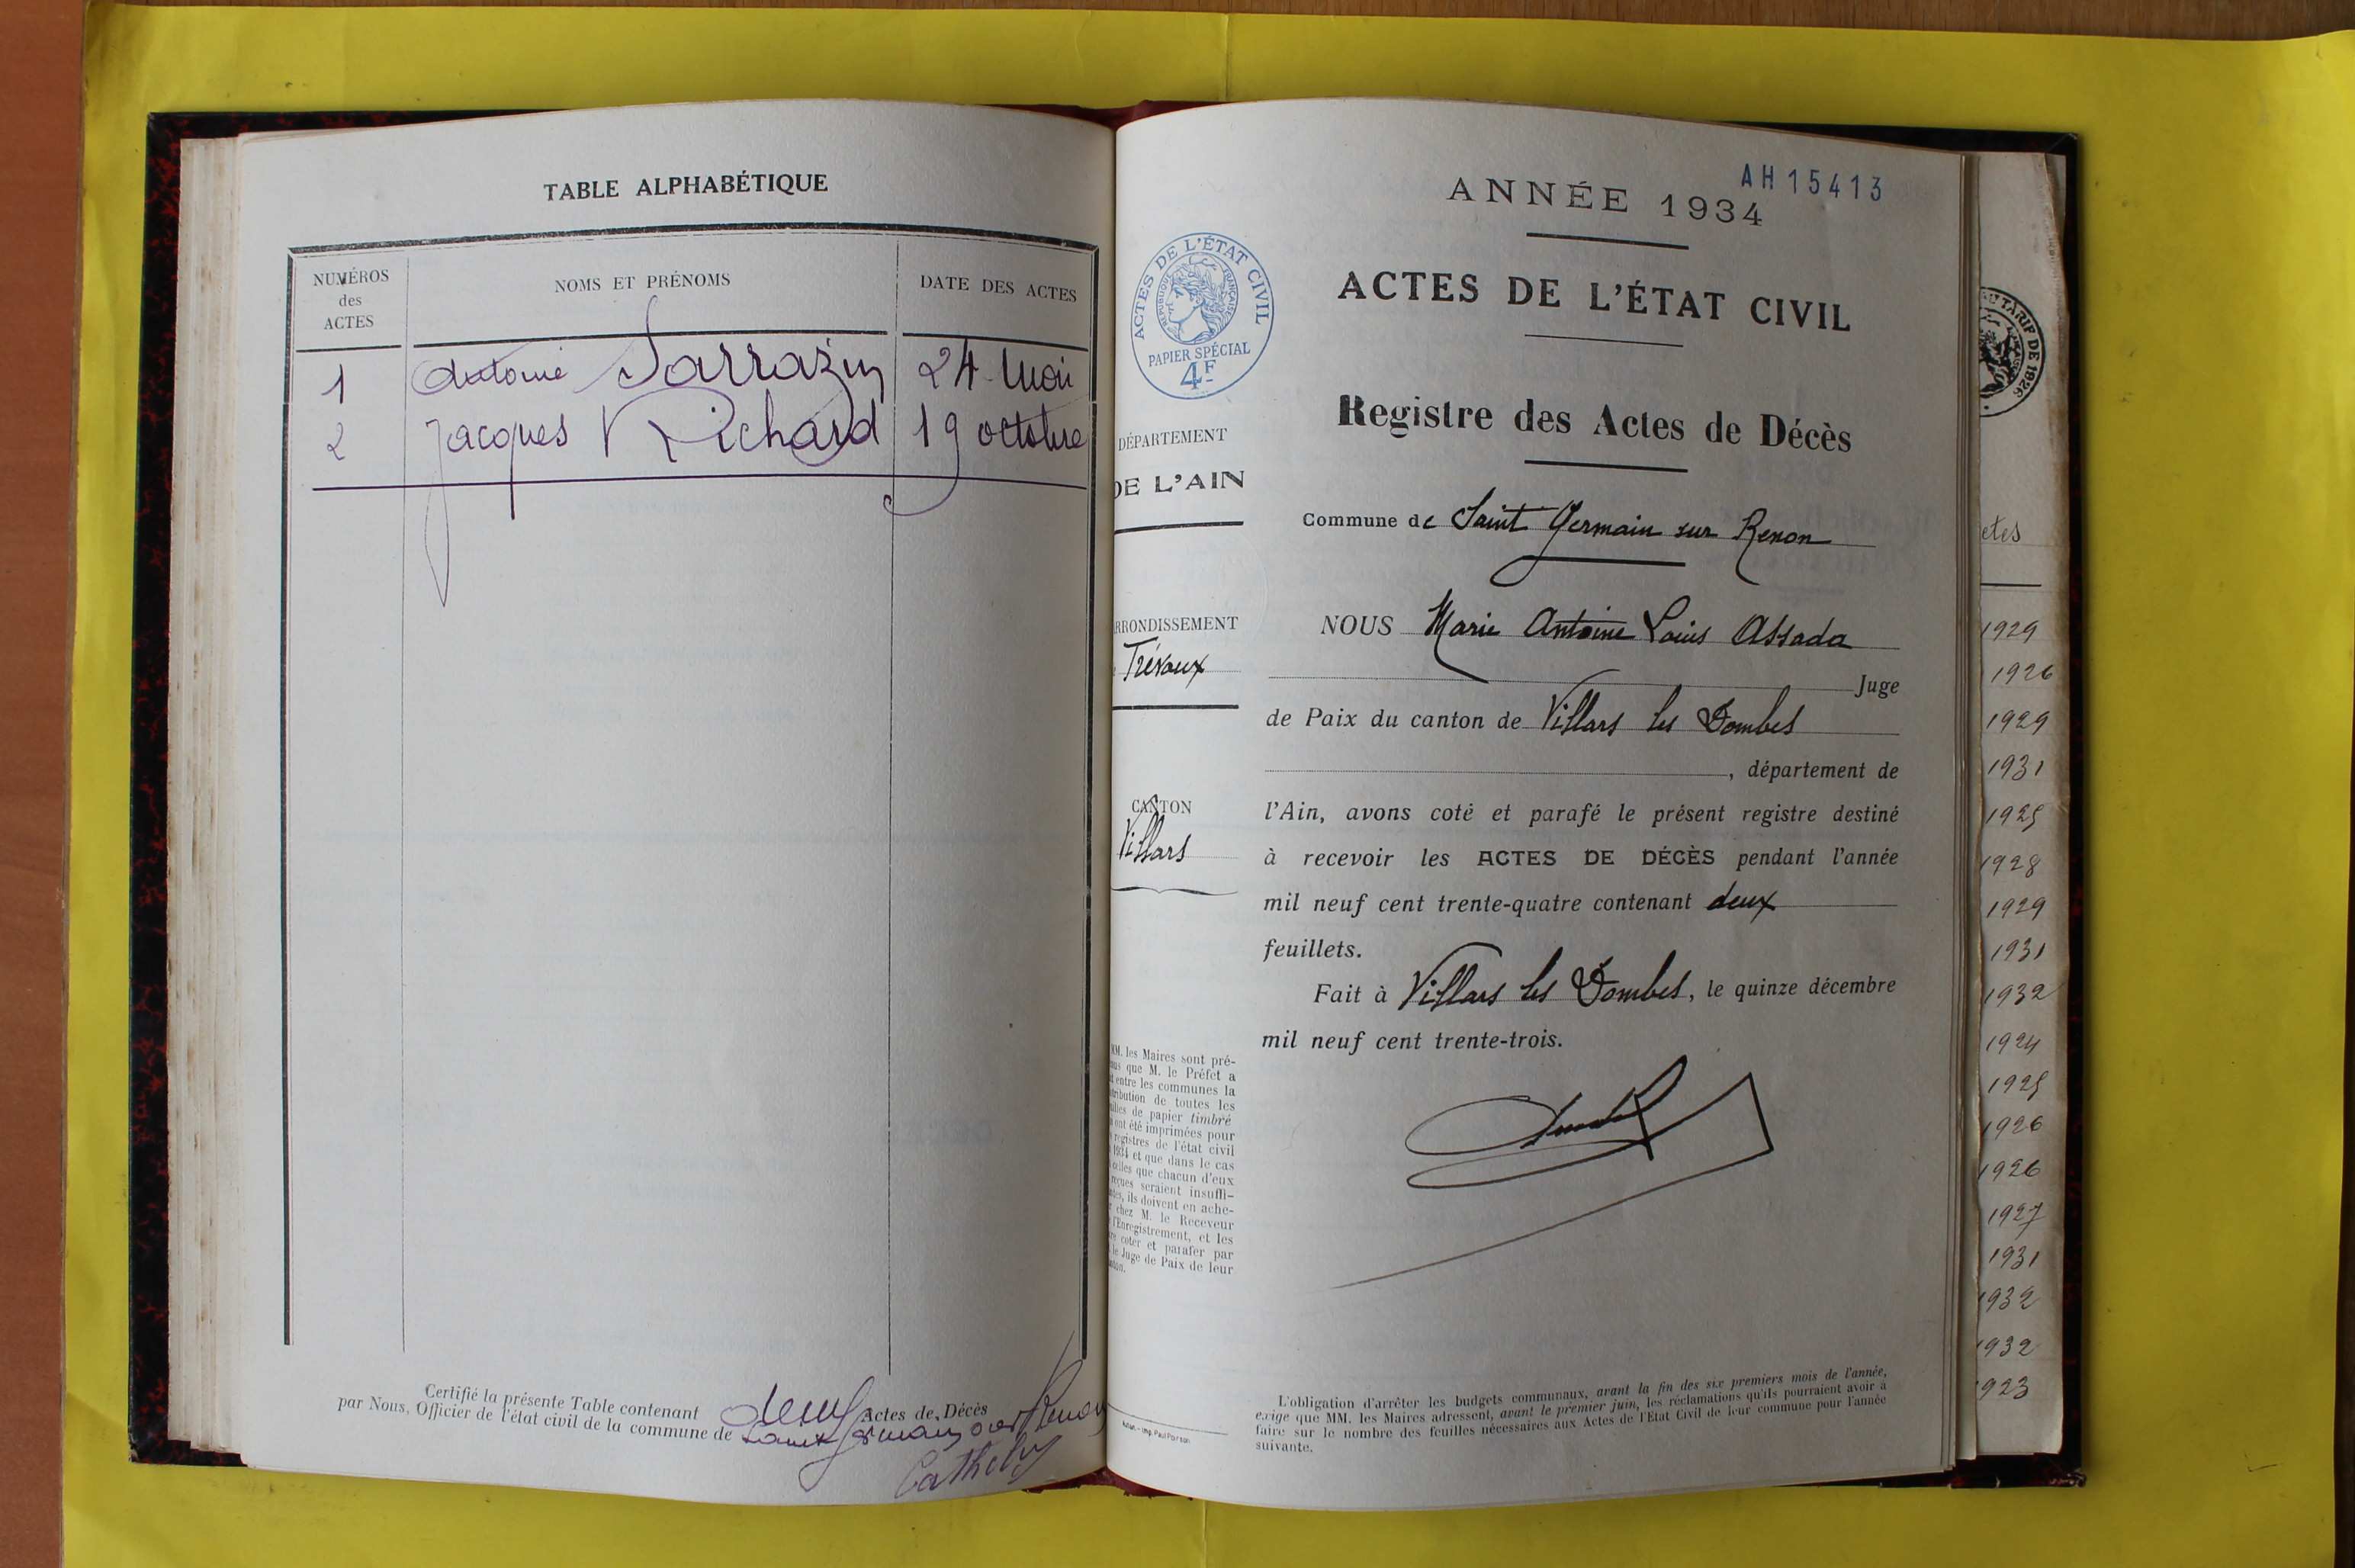 TABLE ALPHABÉTIQUE
NUMÉROS
des
ACTES
NOMS ET PRÉNOMS
DATE DES ACTES
1 Antoine Sarrazin 24 Mai
2 Jacques Richard 19 octobre
Certifié la présente Table contenant deux Actes de Décès
par Nous, Officier de l'état civil de la commune de Saint Germain sur Renon
AH15413
ANNÉE 1934
ACTES DE L'ÉTAT CIVIL
RÉPUBLIQUE FRANÇAISE
PAPIER SPÉCIAL
4F
ACTES DE L'ÉTAT CIVIL
Registre des Actes de Décès
DÉPARTEMENT
DE L'AIN
Commune de Saint Germain sur Renon
RRONDISSEMENT
Trévoux
CANTON
Villars
NOUS Marie Antoine Louis Assada
Juge
de Paix du canton de Villars les Dombes
, département de
l'Ain, avons coté et parafé le présent registre destiné
à recevoir les ACTES DE DÉCÈS pendant l'année
mil neuf cent trente-quatre contenant deux
feuillets.
Fait à Villars les Dombes, le quinze décembre
mil neuf cent trente-trois.
MM. les Maires sont pré-
que M. le Préfet a
entre les communes la
de toutes les
de papier timbré
ont été imprimées pour
registres de l'état civil
1934 et que dans le cas
celles que chacun d'eux
seraient insuffi-
ils doivent en ache-
chez M. le Receveur
l'Enregistrement, et les
coter et parafer par
le Juge de Paix de leur
L'obligation d'arrêter les budgets communaux, avant la fin des six premiers mois de l'année,
exige que MM. les Maires adressent, avant le premier juin, les réclamations qu'ils pourraient avoir à
faire sur le nombre des feuilles nécessaires aux Actes de l'Etat Civil de leur commune pour l'année
suivante.
TARIF DE 1926
etes
1929
1926
1929
1931
1925
1928
1929
1931
1932
1924
1925
1926
1926
1927
1931
1932
1932
923